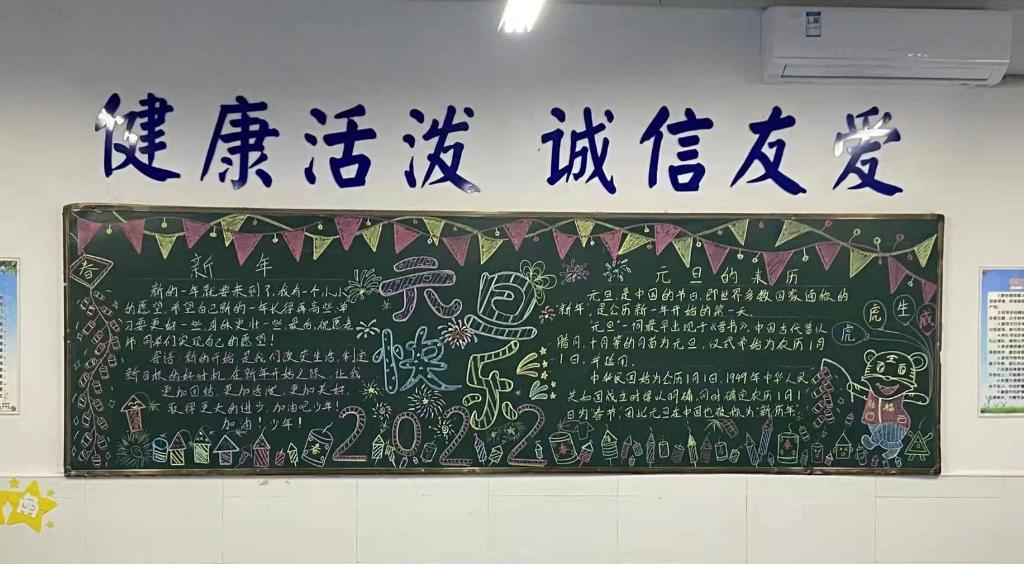 健康活泼 诚信友爱
新年
新的一年就要来到了,我有一个小小
的愿望,希望自己新的一年长得再高些,学
习要更好一些,身体更壮一些,最后,祝愿老
师、同学们实现自己的愿望!
寄语:新的开始是我们改变生活,制定
新目标的好时机,在新年开始之际,让我
更加团结,更加活泼,更加美好,
取得更大的进步,加油吧少年!
加油!少年!
元旦
快乐
2022
元旦的来历
元旦,是中国的节日,即世界多数国家通称的
新年,是公历新一年开始的第一天。
"元旦"一词最早出现于《晋书》,中国古代曾以
腊月、十月等的月首为元旦,汉武帝始为农历1月
1日,并延用。
中华民国始为公历1月1日,1949年中华人民
共和国成立时得以明确,同时确定农历1月1
日为春节,因此元旦在中国也被称为"新历年"。
春
虎
虎
生
威
福